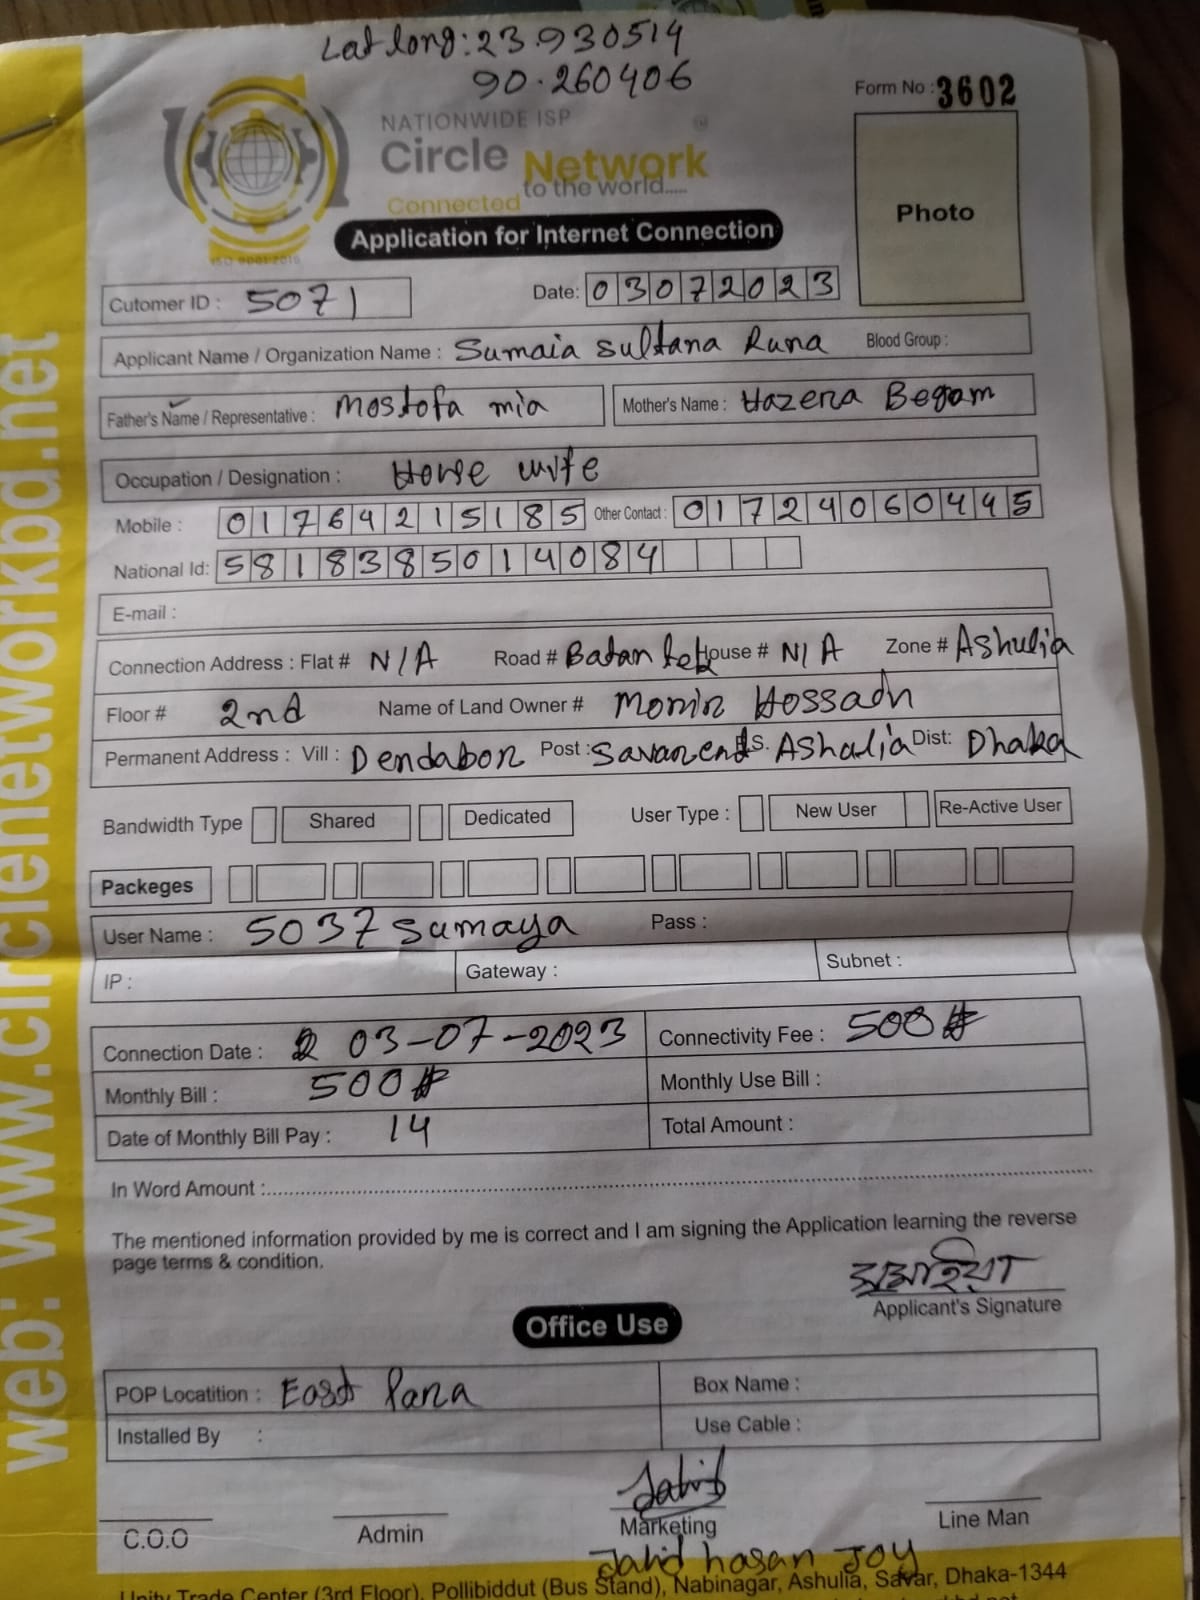 Lat long: 23.930514
90.260406
Form No : 3602
NATIONWIDE ISP
Circle Network
Connected to the world.....
ISO 9001:2015
Photo
Application for Internet Connection
Cutomer ID : 5071 Date: 03072023
Applicant Name / Organization Name : Sumaia sultana Runa Blood Group :
Father's Name / Representative : Mostofa mia Mother's Name : Hazera Begam
Occupation / Designation : House wife
Mobile : 01764215185 Other Contact : 01724060445
National Id: 5818385014084
E-mail :
Connection Address : Flat # N/A Road # Batan House # N/A Zone # Ashulia
Floor # 2nd Name of Land Owner # Monir Hossain
Permanent Address : Vill : Dendabor Post : Savar P.S. Ashulia Dist: Dhaka
Bandwidth Type Shared Dedicated User Type : New User Re-Active User
Packeges
User Name : 5037 sumaya Pass :
IP : Gateway : Subnet :
Connection Date : 03-07-2023 Connectivity Fee : 500
Monthly Bill : 500 Monthly Use Bill :
Date of Monthly Bill Pay : 14 Total Amount :
In Word Amount :
The mentioned information provided by me is correct and I am signing the Application learning the reverse
page terms & condition.
সুমাইয়া
Applicant's Signature
Office Use
POP Locatition : East Para Box Name :
Installed By : Use Cable :
Jahid
C.O.O Admin Marketing Line Man
Jahid hasan Joy
Unity Trade Center (3rd Floor), Pollibiddut (Bus Stand), Nabinagar, Ashulia, Savar, Dhaka-1344
web: www.circlenetworkbd.net